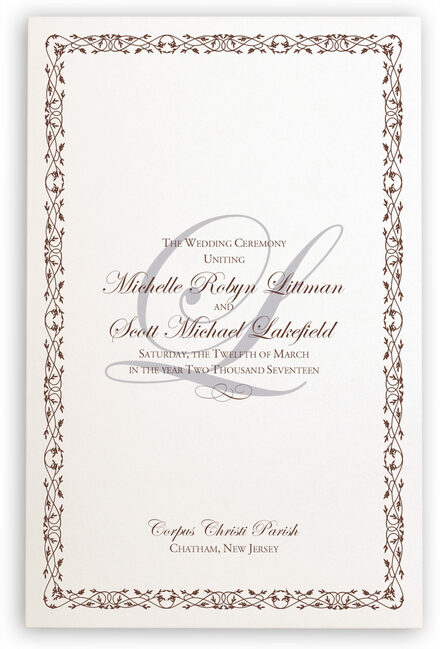 The Wedding Ceremony
Uniting
Michelle Robyn Littman
and
Scott Michael Lakefield
Saturday, the Twelfth of March
in the year Two Thousand Seventeen
L
Corpus Christi Parish
Chatham, New Jersey